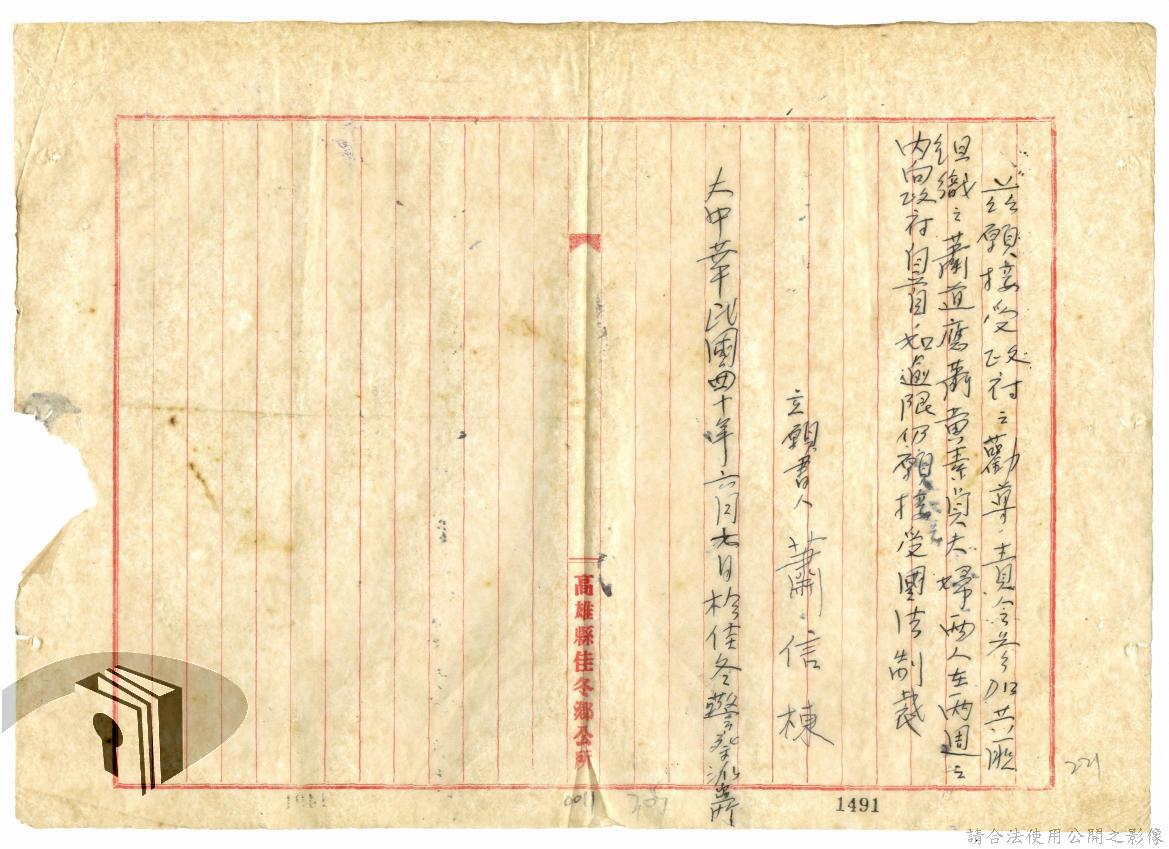 茲願接受政府之勸導責令參加共匪
組織之蕭道應蕭黃素貞夫婦兩人在兩週之
內向政府自首如逾限仍願接受國法制裁
立願書人 蕭信棟
大中華民國四十年六月七日於佳冬警察派出所
高雄縣佳冬鄉公所
1491
221
請合法使用公開之影像